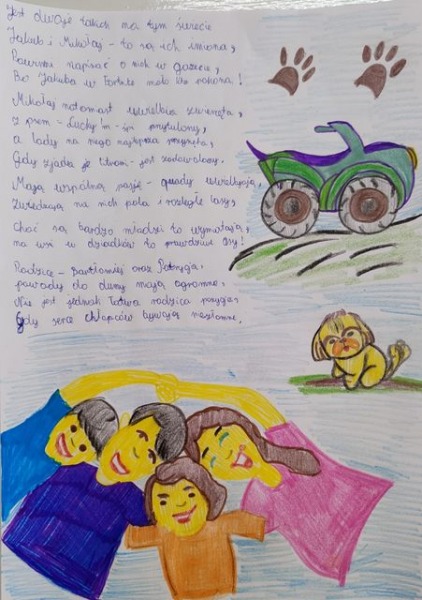 Jest dwoje takich na tym świecie
Jakub i Mikołaj - to są ich imiona,
Powinni napisać o nich w gazecie,
Bo Jakuba w Fortnite mało kto pokona!
Mikołaj natomiast uwielbia zwierzęta,
z psem - Lucky'im - śpi przytulony,
a lody na niego najlepsza przynęta,
Gdy zjada je - jest zadowolony.
Mają wspólną pasję - quady uwielbiają,
Zwiedzają na nich pola i rozległe lasy,
Choć są bardzo młodzi to wymiatają,
na wsi u dziadków to prawdziwe asy!
Rodzice - Bartłomiej oraz Patrycja,
powody do dumy mają ogromne,
Nie jest jednak łatwa rodzica pozycja
Gdy serce chłopców bywają niezłomne.